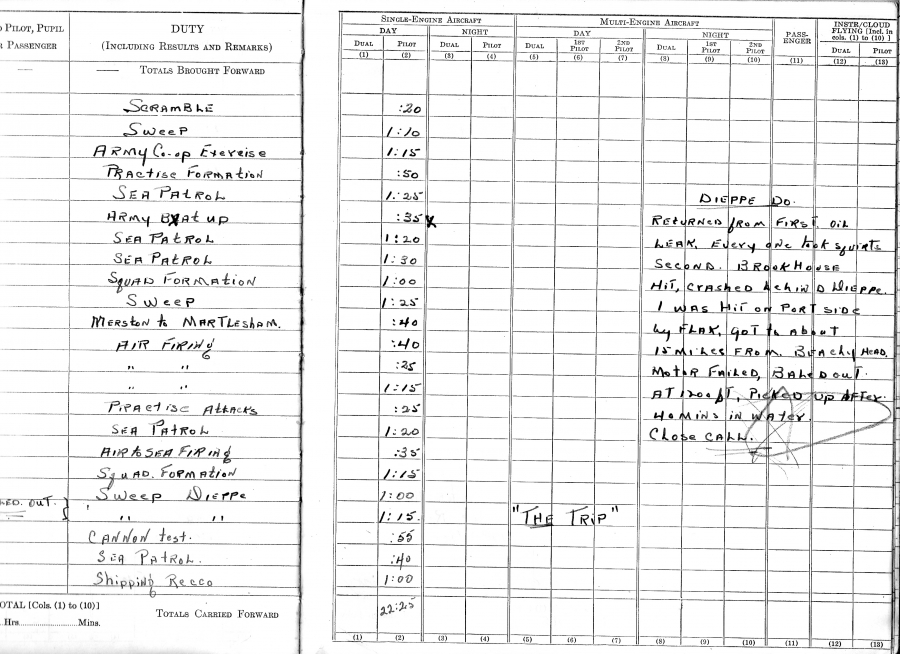 PILOT, PUPIL
PASSENGER
DUTY
(INCLUDING RESULTS AND REMARKS)
—— —— TOTALS BROUGHT FORWARD
SCRAMBLE
SWEEP
ARMY CO-OP EXERCISE
PRACTISE FORMATION
SEA PATROL
ARMY BEAT UP
SEA PATROL
SEA PATROL
SQUAD FORMATION
SWEEP
MERSTON to MARTLESHAM.
AIR FIRING
" "
" "
PRACTISE ATTACKS
SEA PATROL
AIR to SEA FIRING
SQUAD. FORMATION
SWEEP DIEPPE
OUT. } " "
CANNON test.
SEA PATROL.
Shipping Recco
TOTAL [Cols. (1) to (10)]
Hrs. Mins.
TOTALS CARRIED FORWARD
SINGLE-ENGINE AIRCRAFT MULTI-ENGINE AIRCRAFT PASS-ENGER INSTR/CLOUD FLYING [Incl. in cols. (1) to (10)]
DAY NIGHT DAY NIGHT
DUAL PILOT DUAL PILOT DUAL 1ST PILOT 2ND PILOT DUAL 1ST PILOT 2ND PILOT DUAL PILOT
(1) (2) (3) (4) (5) (6) (7) (8) (9) (10) (11) (12) (13)
:20
1:10
1:15
:50
1:25
:35 x
1:20
1:30
1:00
1:25
:40
:40
:25
1:15
:25
1:20
:35
1:15
1:00
1:15.
:55
:40
1:00
22:25
DIEPPE DO.
RETURNED from FIRST. OIL
LEAK. EVERY one took squirts
SECOND. BROOKHOUSE
HIT, CRASHED behind DIEPPE.
I WAS HIT on PORT SIDE
by FLAK, GOT to about
15 MILES FROM. BEACHY HEAD.
MOTOR FAILED, BALED OUT.
AT 1200 ft, PICKED UP AFTER.
40 MINS IN WATER.
CLOSE CALL.
"THE TRIP"
(1) (2) (3) (4) (5) (6) (7) (8) (9) (10) (11) (12) (13)